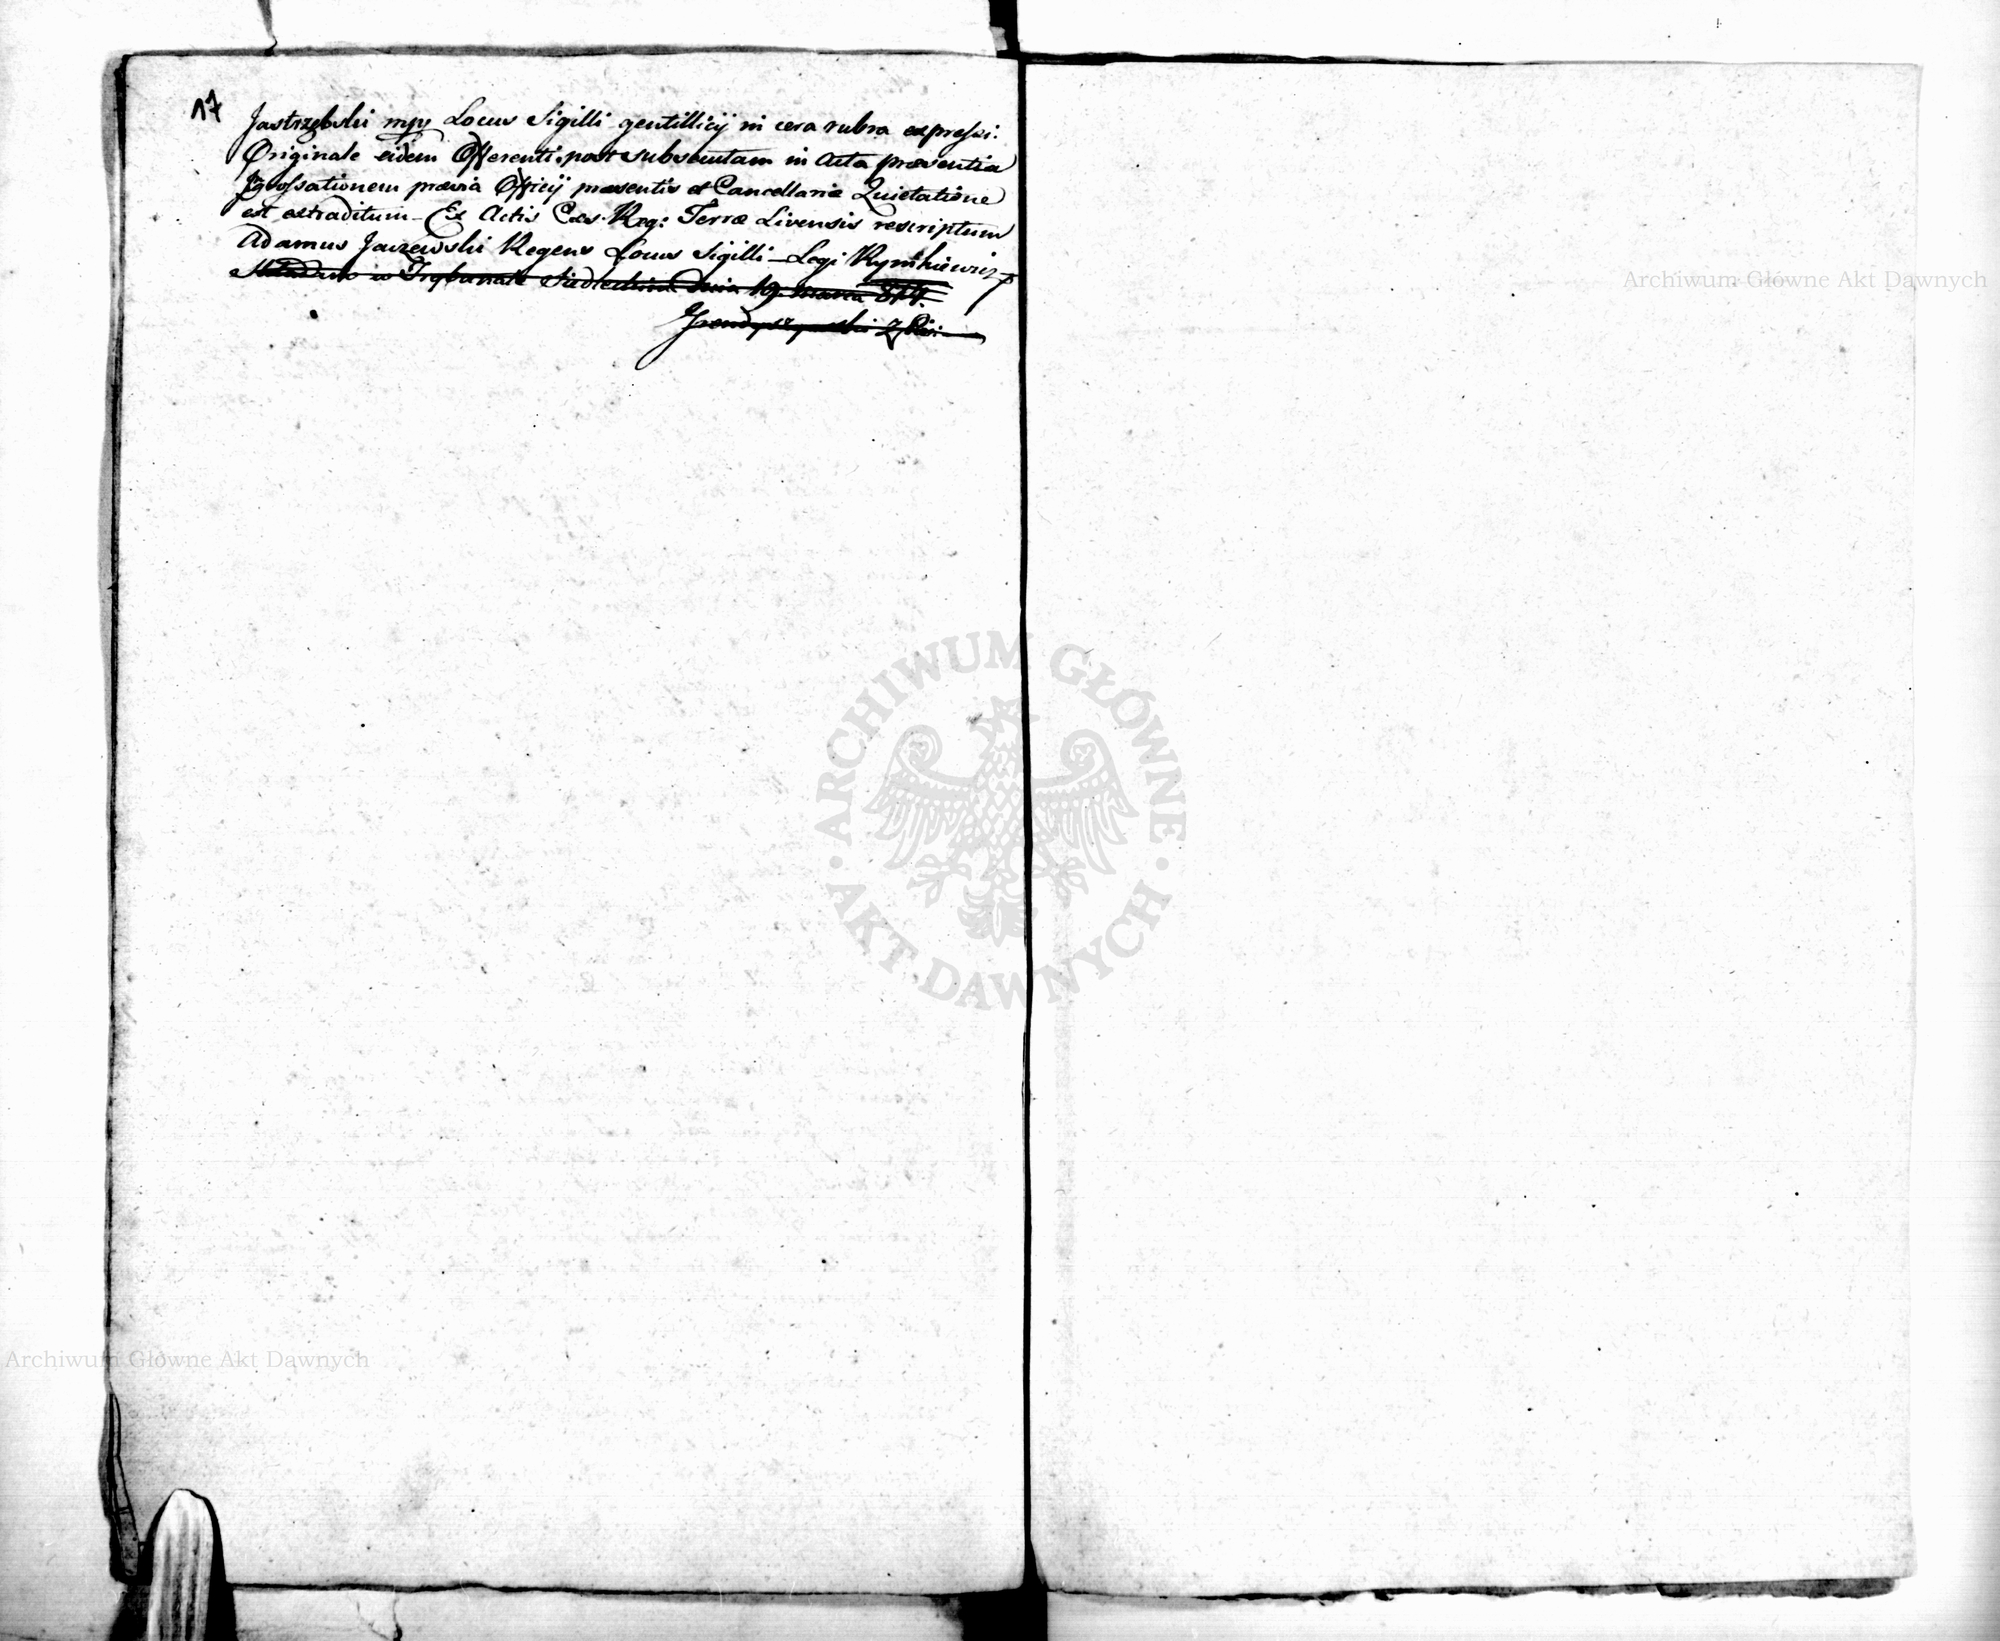 17
Jastrzębski mpp Locus Sigilli gentillicij in cera rubra expressi.
Originale eidem Offerenti post subsecutam in Acta præsentia
Jgrossationem prævia Officij præsentis et Cancellariæ Quietatione
est extraditum – Ex Actis Cas. Reg: Terræ Livensis rescriptum
Adamus Jaczewski Regens Locus Sigilli – Legi Rymkiewicz
Składam w Trybunale Siedleckim dnia 19. marca 814.
Archiwum Główne Akt Dawnych
ARCHIWUM GŁÓWNE
· AKT DAWNYCH ·
Archiwum Główne Akt Dawnych